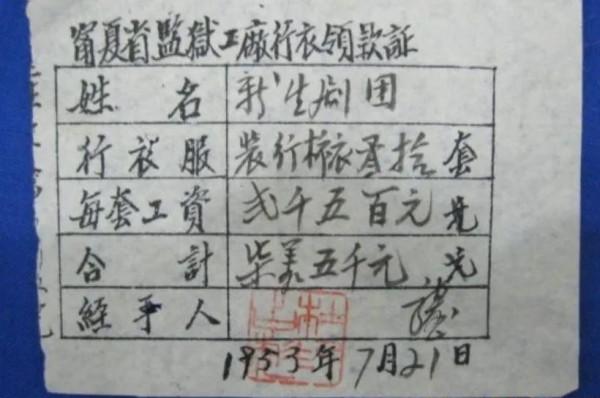 甯夏省監獄工廠行衣領款証
姓名 新生剧团
行衣服 装行棉衣叁拾套
每套工資 弍千五百元
合計 柒萬五千元
經手人
1953年7月21日